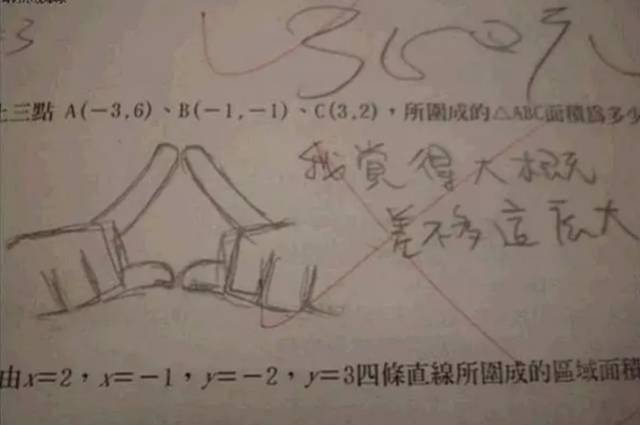 3
350元
上三點 A(-3,6)、B(-1,-1)、C(3,2),所圍成的△ABC面積為多少
我覺得大概
差不多這麼大
由x=2,x=-1,y=-2,y=3四條直線所圍成的區域面積